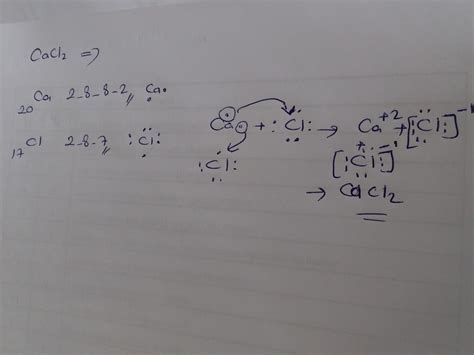 CaCl2 ⇒
20 Ca 2-8-8-2,, Ca
17 Cl 2-8-7,, :Cl:
Ca + :Cl: → Ca+2 + [:Cl:]-1
:Cl: + [:Cl:]-1
→ CaCl2